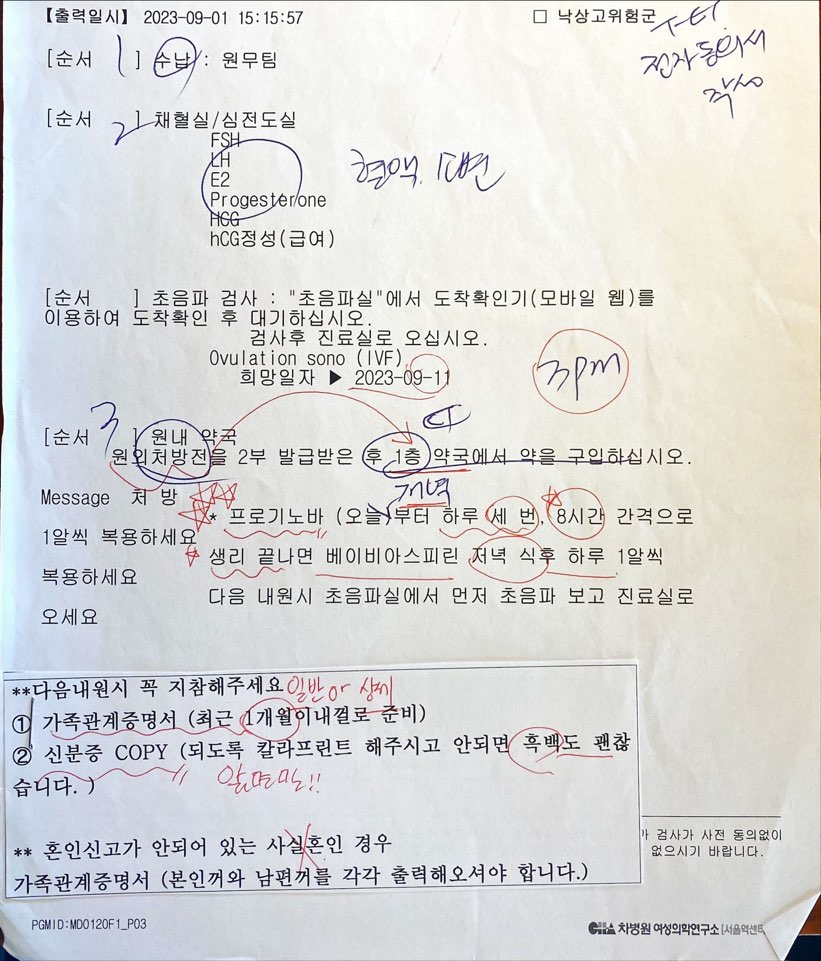 【출력일시】 2023-09-01 15:15:57
□ 낙상고위험군
전자동의서
작성
[순서 1 ] 수납 : 원무팀
[순서 2 ] 채혈실/심전도실
FSH
LH
E2
Progesterone
HCG
hCG정성(급여)
혈액.
[순서 ] 초음파 검사 : "초음파실"에서 도착확인기(모바일 웹)를
이용하여 도착확인 후 대기하십시오.
검사후 진료실로 오십시오.
Ovulation sono (IVF)
희망일자 ▶ 2023-09-11
3pm
[순서 3 ] 원내 약국
원외처방전을 2부 발급받은 후 1층 약국에서 약을 구입하십시오.
저녁
Message 처 방
* 프로기노바 (오늘)부터 하루 세 번, 8시간 간격으로
1알씩 복용하세요
생리 끝나면 베이비아스피린 저녁 식후 하루 1알씩
복용하세요
다음 내원시 초음파실에서 먼저 초음파 보고 진료실로
오세요
**다음내원시 꼭 지참해주세요 일반 or 상세
① 가족관계증명서 (최근 1개월이내껄로 준비)
② 신분증 COPY (되도록 칼라프린트 해주시고 안되면 흑백도 괜찮
습니다. )
앞면만!!
** 혼인신고가 안되어 있는 사실혼인 경우
가족관계증명서 (본인꺼와 남편꺼를 각각 출력해오셔야 합니다.)
검사가 사전 동의없이
없으시기 바랍니다.
PGMID:MD0120F1_P03
CHA 차병원 여성의학연구소 [서울역센터